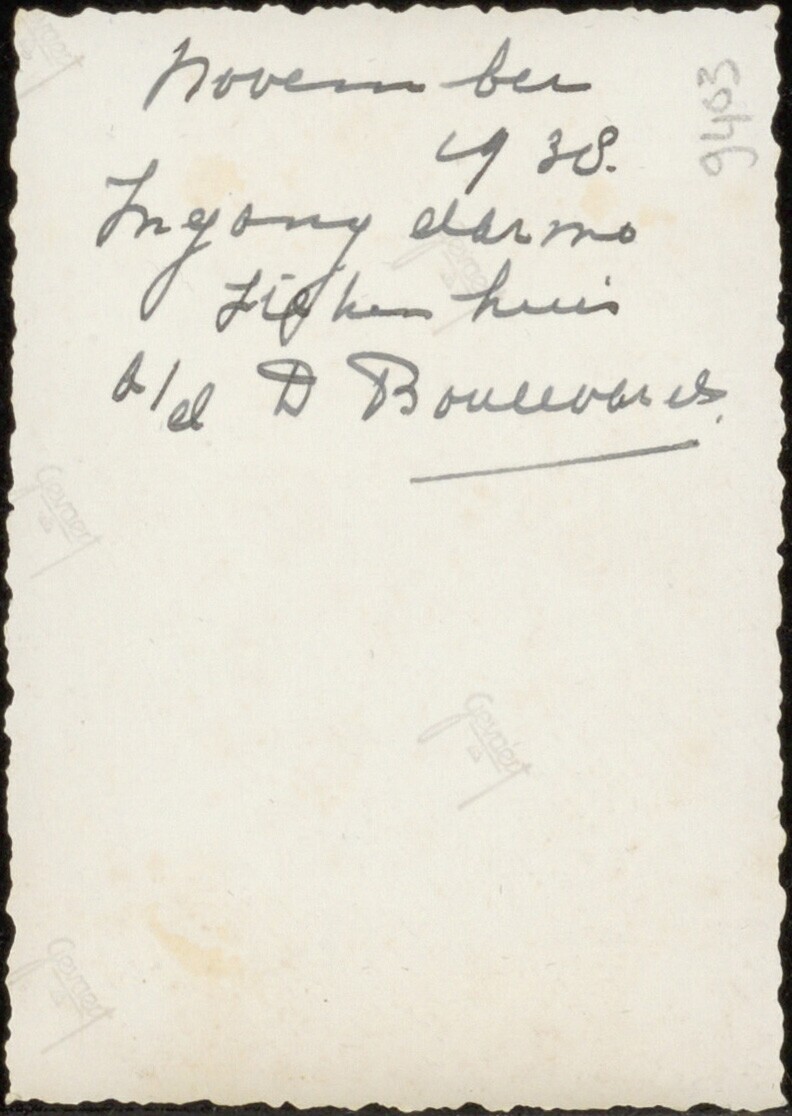 November
1938.
Ingang darmo
Zieken huis
a/d D Boulevard.
9403
Gevaert
Gevaert
Gevaert
Gevaert